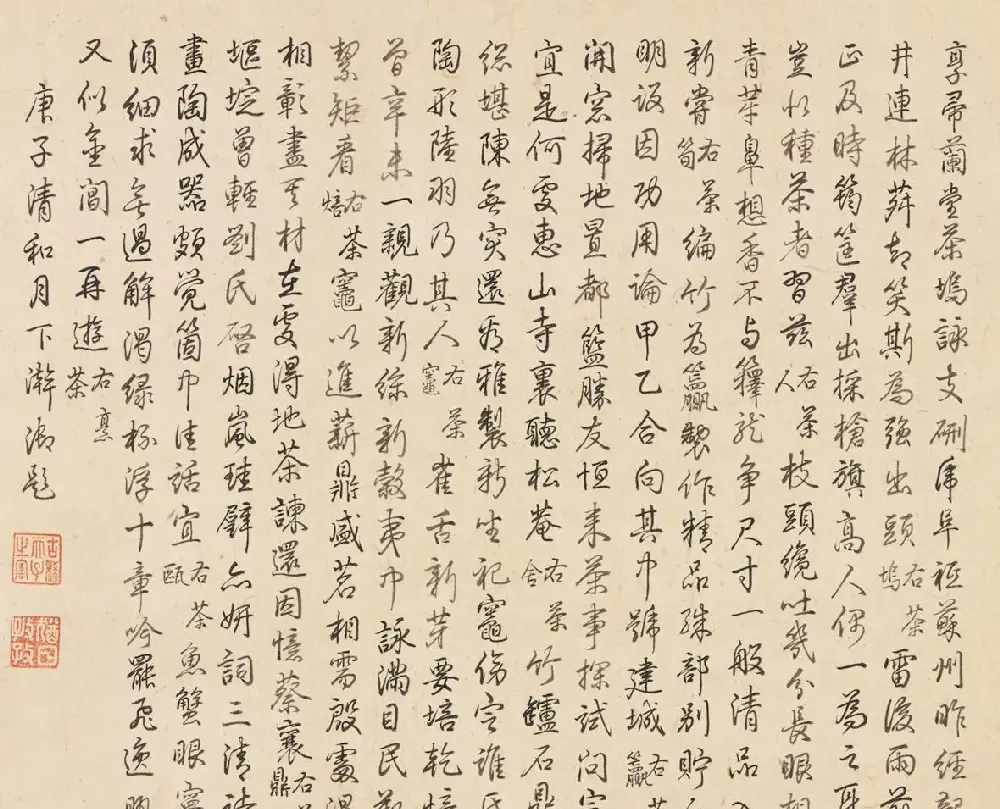 享帚蘭堂茶塢詠支硎虎阜祗蘇州昨經
井連林薜却笑斯為強出頭右茶塢雷後雨前
正及時筠筐羣出採槍旗高人偶一為之耳
豈似種茶者習茲右茶人枝頭纔吐幾分長眼
青芽鼻想香不与籜龍爭尺寸一般清品
新嘗右茶筍編竹為籯製作精品殊部別貯
明設因功用論甲乙合向其中號建城右茶籯
開窓掃地置都籃勝友恒來茶事探試问
宜是何處惠山寺裏聽松菴右茶舍竹鑪石鼎
総堪陳無突還看雅製新坐祀竈傍定誰氏
陶形陸羽乃其人右茶竈雀舌新芽要培乾
曾辛未一親觀新綠新榖夷中詠滿目民
絜矩看右茶焙竈以進薪鼎盛茗相需殷
相彰盡其材在處得地茶諫還因憶蔡襄右茶鼎
堰埞曾輕劉氏啓烟嵐珪璧亦妍詞三清
畫陶成器頗覺箇中佳話宜右茶甌魚蟹眼
須細求無過解渴綠杯浮十章吟罷飛逸
又似重閣一再遊右烹茶
庚子清和月下澣御題